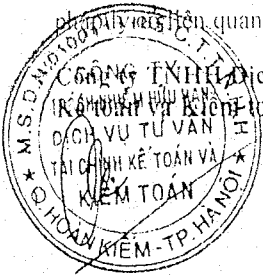 pháp lý có liên quan
Công ty TNHH Dịc
Kế toán và Kiểm to
M.S.D.N:01001 C.T.T.N.H.H
CÔNG TY
TRÁCH NHIỆM HỮU HẠN
DỊCH VỤ TƯ VẤN
TÀI CHÍNH KẾ TOÁN VÀ
KIỂM TOÁN
Q.HOÀN KIẾM-TP.HÀ NỘI